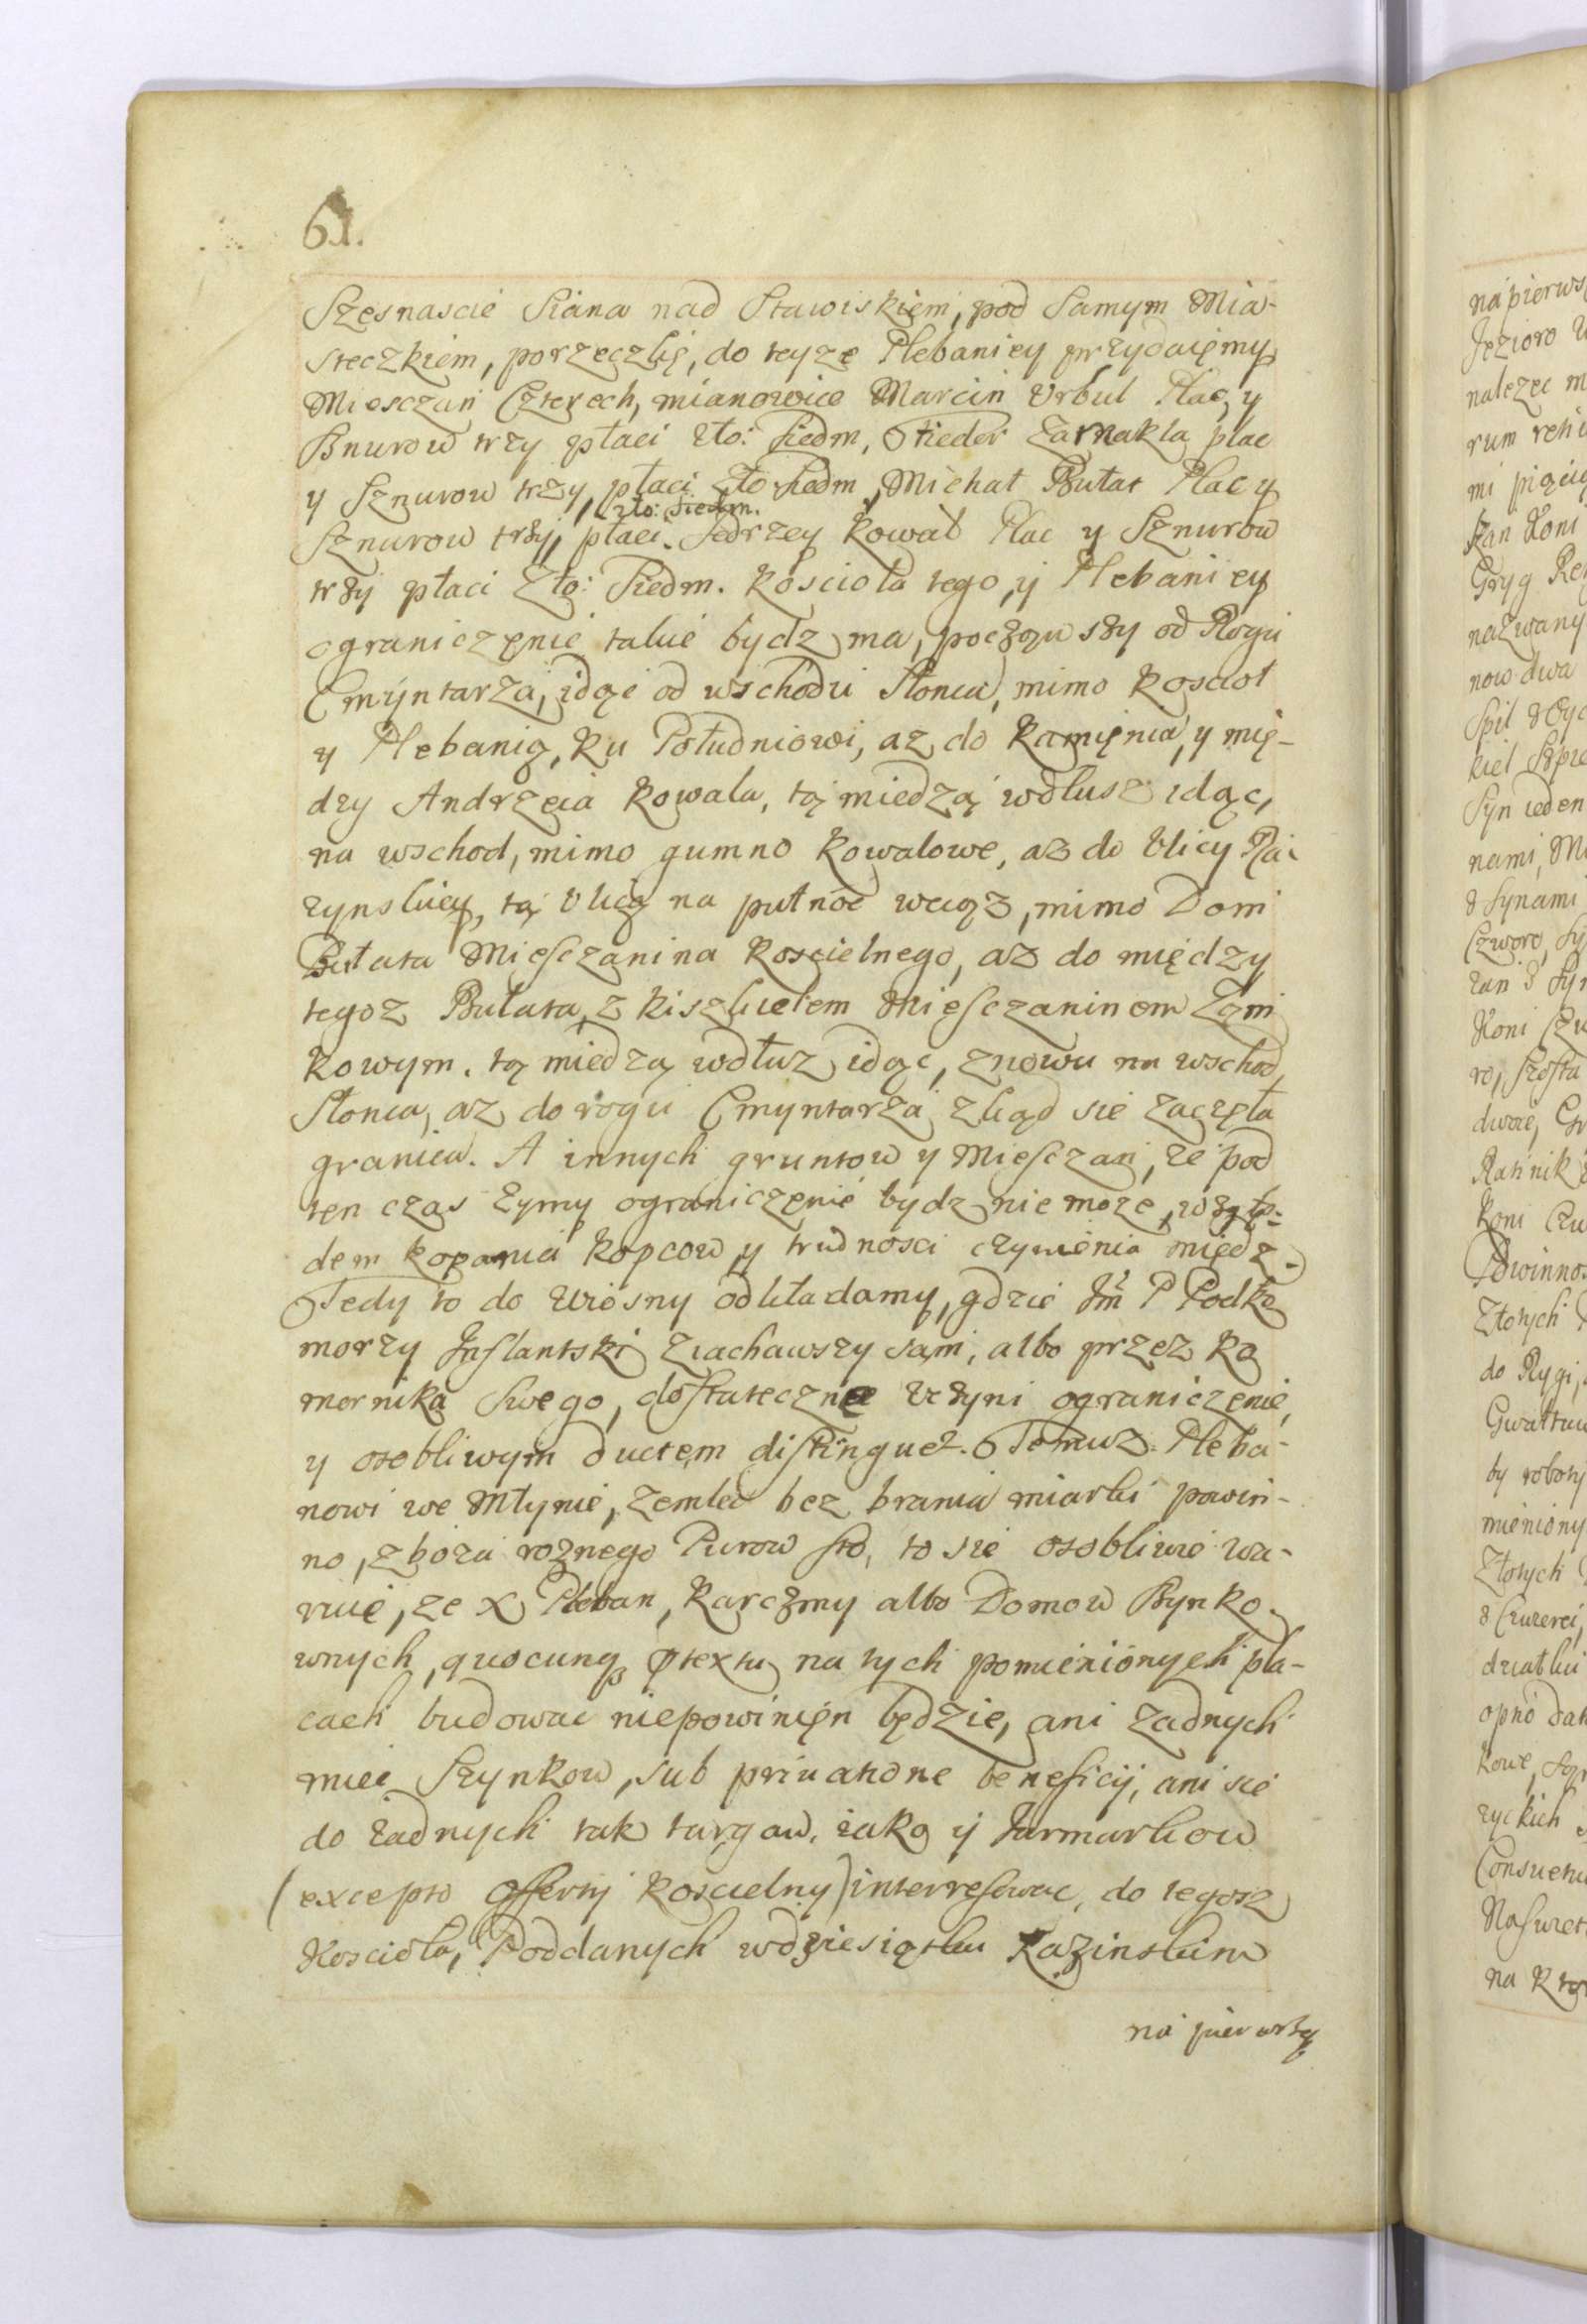 61.
Szesnascie Siana nad Stawiskiem, pod Samym Mia-
steczkiem, porzeczkę, do teyze Plebaniey przydaiemy
Miesczan Czterech, mianowice Marcin Urbul Plac, y
Snurow trzy płaci zło: Siedm, Fieder Zarnakla plac
y Sznurow trzy, płaci Zło Siedm, Michał Bułat Plac y
Sznurow trzy, płaci zło: Siedm. Jedrzey Kowal Plac y Sznurow
trzy płaci Zło: Siedm. Kosciola tego, y Plebaniey
ograniczęnie takie bydz ma, począwszy od Rogu
Cmyntarza, idąc od wschodu Słonca, mimo Kosciot
y Plebanią, ku Południowi, az do Kamięnia, y mię-
dzy Andrzeia Kowala, tą miedzą wdlusz idąc,
na wschod, mimo gumno Kowalowe, az do Ulicy
tą Ulicą na putnoc wciąz, mimo Dom
Bułata Miesczanina Koscielnego, az do między
tegoz Bulata, z Kiszkielem Miesczaninem Zam
kowym. tą miedzą wdłuz idąc, znowu na wschod
Słonca, az do rogu Cmyntarza zkąd sie zaczęła
granica. A innych gruntow y Miesczan, ze pod
ten czas zymy ograniczęnie bydz nie moze, wzglę-
dem kopania Kopcow, y trudnosci czynienia międz
Tedy to do Wiosny odkładamy, gdzie Jm P Podko
morzy Inflantski ziachawszy sam, albo przez Ko
mornika Swego, dostateczne Uczyni ograniczenie,
y osobliwym ductem distinguet. Temuz Pleba-
nowi we Młynie, zemlec bez brania miarki powin-
no, zboza roznego Purow sto, to sie osobliwie wa-
ruie, ze X Pleban, Karczmy albo Domow Szynko
wnych, quocunq ptextu na tych pomienionych pla-
cach budowac niepowinięn będzie, ani Zadnych
miec Szynkow, sub privatione beneficij, ani sie
do zadnych tak targow, iako y Jarmarkow
(excepto Offerty Koscielny) interresowac, do tegosz
Kosciola, Poddanych wdziesiątku Kazinskim
na pierwszy